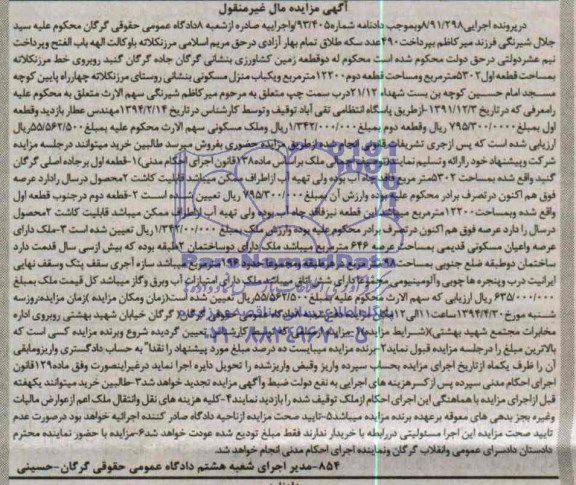 آگهی مزایده مال غیرمنقول
درپرونده اجرایی۸/۹۱/۲۹۸وبموجب دادنامه شماره۹۳/۴۰۵واجراییه صادره ازشعبه ۸دادگاه عمومی حقوقی گرگان محکوم علیه سید
جلال شیرنگی فرزند میرکاظم بپرداخت ۴۹۰عدد سکه طلای تمام بهار آزادی درحق مریم اسلامی مرزنکلاته باوکالت الهه باب الفتح وپرداخت
نیم عشردولتی درحق دولت محکوم شده است محکوم له دوقطعه زمین کشاورزی بنشانی گرگان جاده گرگان گنبد روبروی خط مرزنکلاته
بمساحت قطعه اول۵۳۰۲مترمربع ومساحت قطعه دوم۱۲۲۰۰مترمربع ویکباب منزل مسکونی بنشانی روستای مرزنکلاته چهارراه پایین کوچه
مسجد امام حسین کوچه بن بست شهداء ۲۱/۱۲درب سمت چپ متعلق به مرحوم میرکاظم شیرنگی سهم الارث متعلق به محکوم علیه
رامعرفی که درتاریخ ۱۳۹۱/۱۲/۳-ازطریق پاسگاه انتظامی تقی آباد توقیف وتوسط کارشناس در تاریخ ۱۳۹۴/۲/۱۴مهندس عطار بازدید وقطعه
اول بمبلغ۷۹۵/۳۰۰/۰۰۰ ریال وقطعه دوم بمبلغ۱/۳۴۲/۰۰۰/۰۰۰ریال وملک مسکونی سهم الارث محکوم علیه بمبلغ۵۵/۵۶۲/۵۰۰ریال
ارزیابی شده است که پس ازجری تشریفات قانونی ازطریق مزایده حضوری بفروش میرسد طالبین خرید میتوانند درجلسه مزایده
شرکت وپیشنهاد خود راارائه وتسلیم نمایند اجمالی ملک براساس ماده۱۳۸قانون اجرای احکام مدنی)۱-قطعه اول برجاده اصلی گرگان
گنبد واقع شده بمساحت ۵۳۰۲متر مربع فاقد چاه آب بوده ولی تهیه آب ازاطراف ممکن میباشد قابلیت کاشت ۲محصول درسال رادارد عرصه
فوق هم اکنون درتصرف برادر محکوم علیه بوده وارزش آن بمبلغ۷۹۵/۳۰۰/۰۰۰ ریال تعیین شده است ۲-قطعه دوم درجنوب قطعه اول
واقع شده وبمساحت۱۲۲۰۰مترمربع میباشد این قطعه نیزفاقد چاه آب بوده ولی تهیه آب ازاطراف ممکن میباشد قابلیت کاشت ۲محصول
درسال را دارد عرصه فوق هم اکنون درتصرف برادر محکوم علیه بوده وارزش ملک بمبلغ ۱/۳۴۲/۰۰۰/۰۰۰ریال تعیین شده است ۳-ملک دارای
عرصه واعیان مسکونی قدیمی بمساحت عرصه ۶۴۶ مترمربع میباشد ملک دارای دوساختمان ۲طبقه بوده که بیش ازسی سال قدمت دارد
ساختمان دوطبقه ضلع جنوبی بمساحت ۹۸متر مربع درهرطبقه ومجموعا حدود ۱۹۶مترمربع میباشد سازه آجری سقف پتک وسقف نهایی
ایرانیت درب وپنجره ها چوبی وآلومینیومی مجموعا دارای شش اتاق میباشد ملک دارای امتیازات آب وبرق وگاز میباشد کل قیمت ملک بمبلغ
۶۳۵/۰۰۰/۰۰۰ ریال ارزیابی که سهم الارث محکوم علیه بمبلغ۵۵/۵۶۲/۵۰۰ریال تعیین شده است(زمان ومکان مزایده )زمان مزایده=روزسه
شنبه مورخ۱۳۹۴/۴/۳۰ساعت۱۱الی۱۲مکان مزایده=اجرای شعبه۸دادگاه عمومی حقوقی گرگان= گرگان خیابان شهید بهشتی روبروی اداره
مخابرات مجتمع شهید بهشتی)(شرایط مزایده)۱-مزایده ازمبلغی که توسط کارشناس تعیین گردیده شروع وبرنده مزایده کسی است که
بالاترین مبلغ را درجلسه مزایده قبول نماید۲-برنده مزایده میبایست ده درصد مبلغ مورد پیشنهاد را نقدا" به حساب دادگستری واریزومابقی
آن را ظرف یکماه ازتاریخ اجرای مزایده بحساب سپرده واریز وقبض واریزشده را تحویل دایره اجرا نماید درغیراینصورت وفق ماده۱۲۹قانون
اجرای احکام مدنی سپرده پس از کسرهزینه های اجرایی به نفع دولت ضبط وآگهی مزایده تجدید خواهد شد۳-طالبین خرید میتوانند یکهفته
قبل ازاجرای مزایده با هماهنگی این اجرای احکام ازملک توقیف شده را بازدید نمایند۴-کلیه هزینه های نقل وانتقال ملک اعم ازعوارض مالیات
وغیره بجز بدهی های معوقه برعهده برنده مزایده میباشد۵-تایید صحت مزایده ازناحیه دادگاه صادر کننده اجرائیه خواهد بود درصورت عدم
تایید صحت مزایده این اجرا مسئولیتی دررابطه با خریدار ندارند فقط مبلغ تودیع شده عودت خواهد شد۶-مزایده با حضور نماینده محترم
دادستان دادسرای عمومی وانقلاب گرگان ونماینده اجرای احکام مدنی انجام خواهد شد.
۸۵۴-مدیر اجرای شعبه هشتم دادگاه عمومی حقوقی گرگان-حسینی